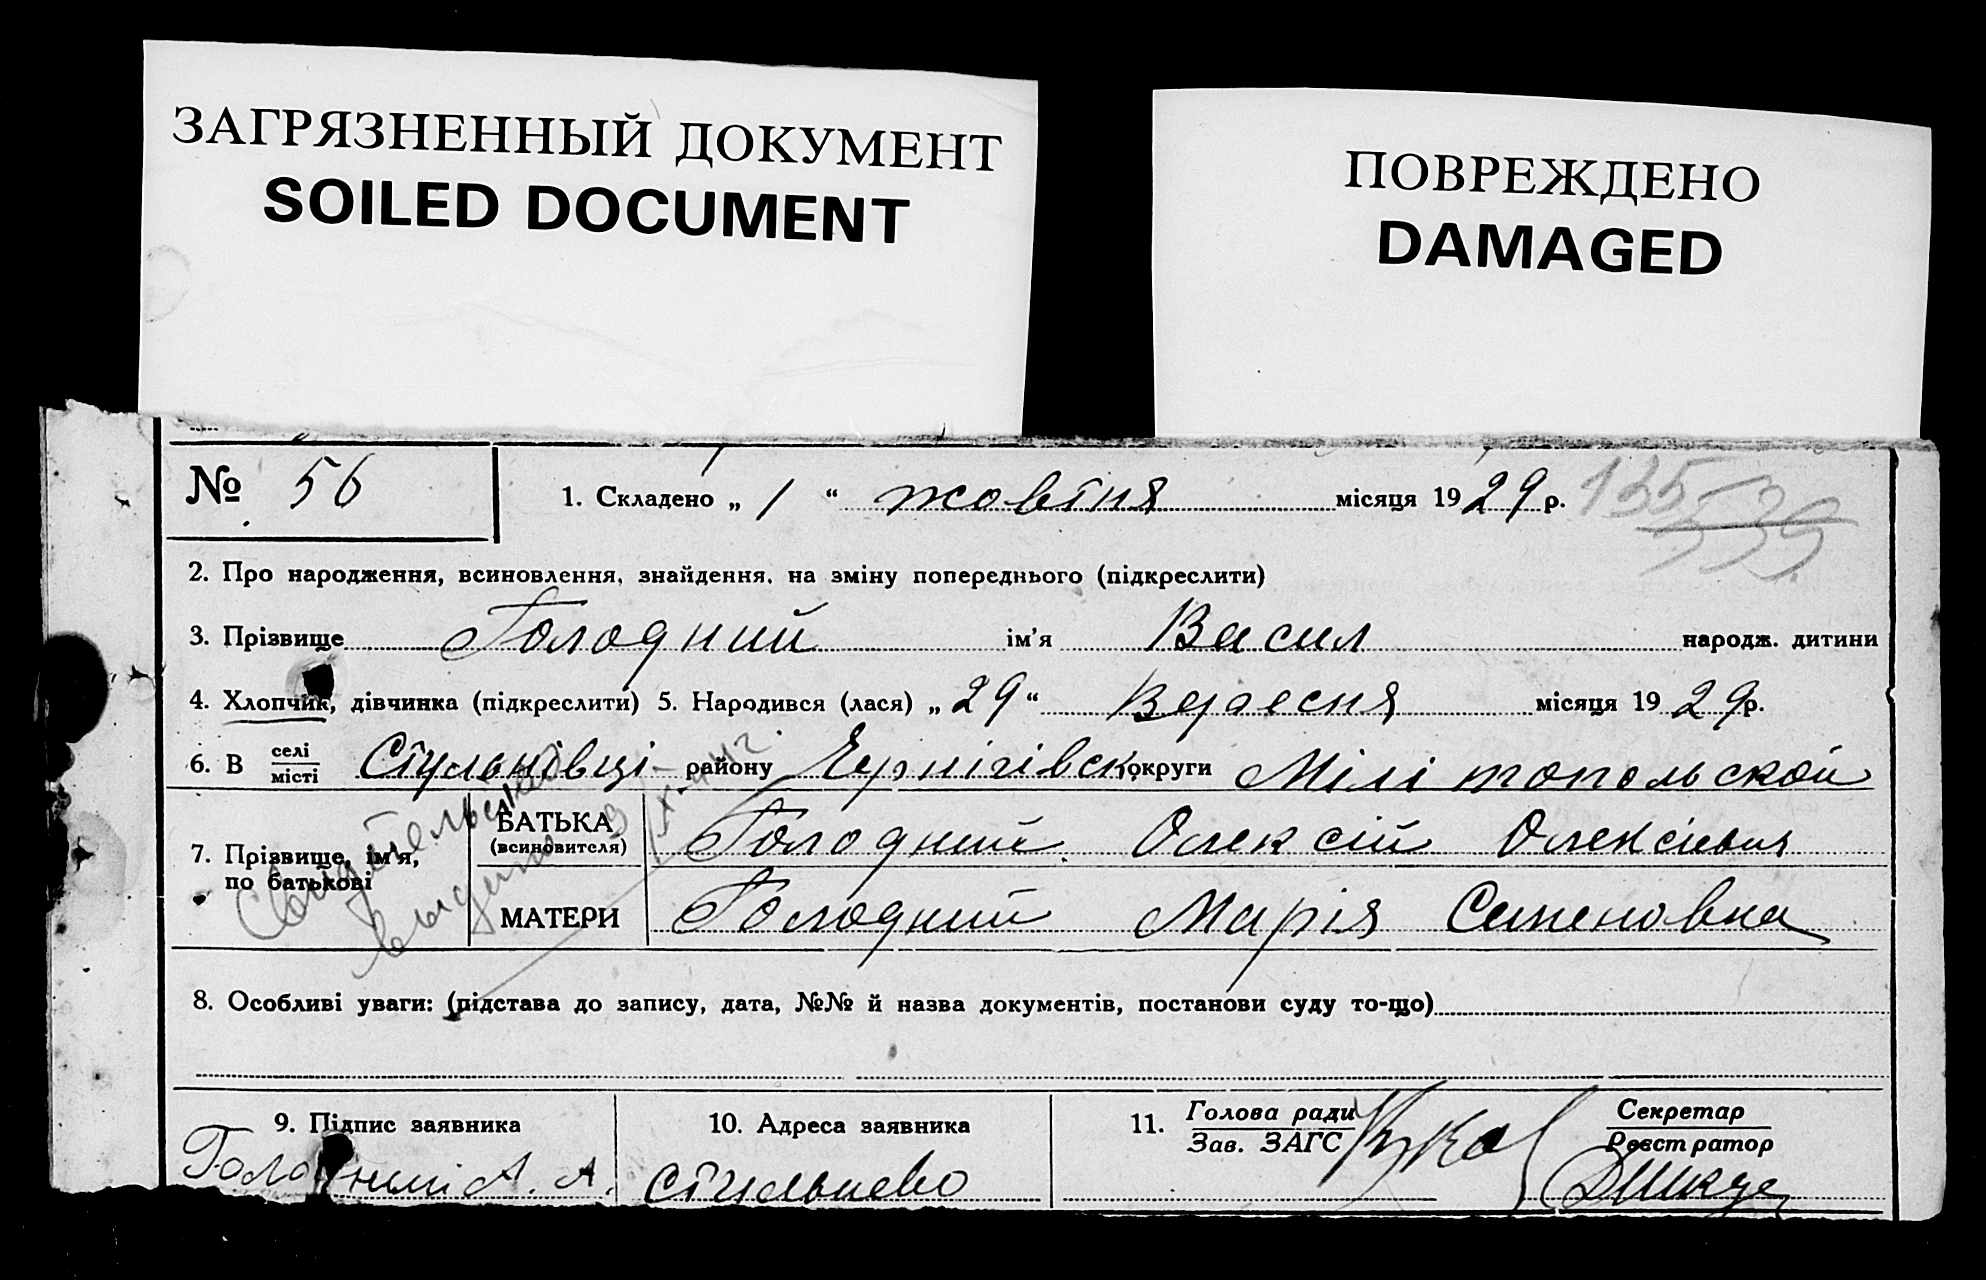 ЗАГРЯЗНЕННЫЙ ДОКУМЕНТ
SOILED DOCUMENT
ПОВРЕЖДЕНО
DAMAGED
№ 56
1. Складено „ 1 “ жовтня місяця 1929 р. 135
539
2. Про народження, всиновлення, знайдення, на зміну попереднього (підкреслити)
3. Прізвище Голодний ім'я Васил народж. дитини
4. Хлопчик, дівчинка (підкреслити) 5. Народився (лася) „ 29 “ Вересня місяця 1929 р.
6. В селі
місті Стульнівці району Чернігівск округи Мілітопольской
7. Прізвище, ім'я,
по батькові
БАТЬКА
(всиновителя)
Голодний Олексій Олексієвич
МАТЕРИ
Голодний Марія Семеновна
8. Особливі уваги: (підстава до запису, дата, №№ й назва документів, постанови суду то-що)
9. Підпис заявника
Голодний А. А.
10. Адреса заявника
Стульнево
11. Голова ради
Зав. ЗАГС
Секретар
Реєстратор